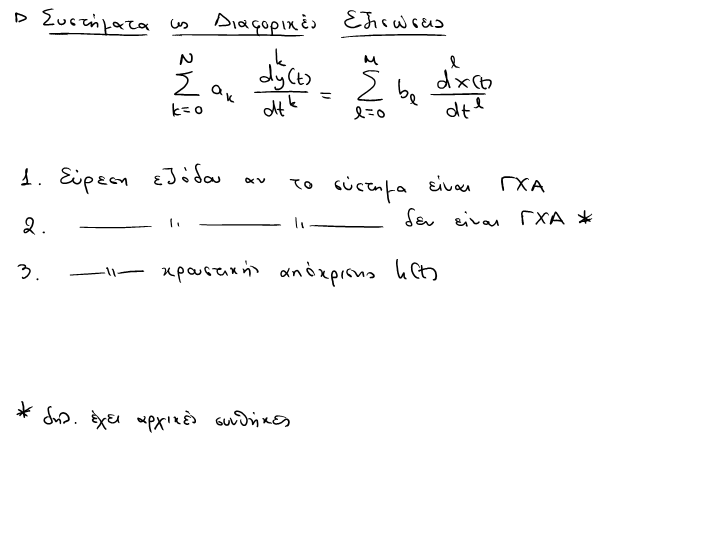 ▷ Συστήματα ως Διαφορικές Εξισώσεις
$\sum_{k=0}^{N} a_k \frac{d^k y(t)}{dt^k} = \sum_{l=0}^{M} b_l \frac{d^l x(t)}{dt^l}$
1. Εύρεση εξόδου αν το σύστημα είναι ΓΧΑ
2. —— " —— " —— δεν είναι ΓΧΑ *
3. —"— κρουστικής απόκρισης h(t)
* δηλ. έχει αρχικές συνθήκες